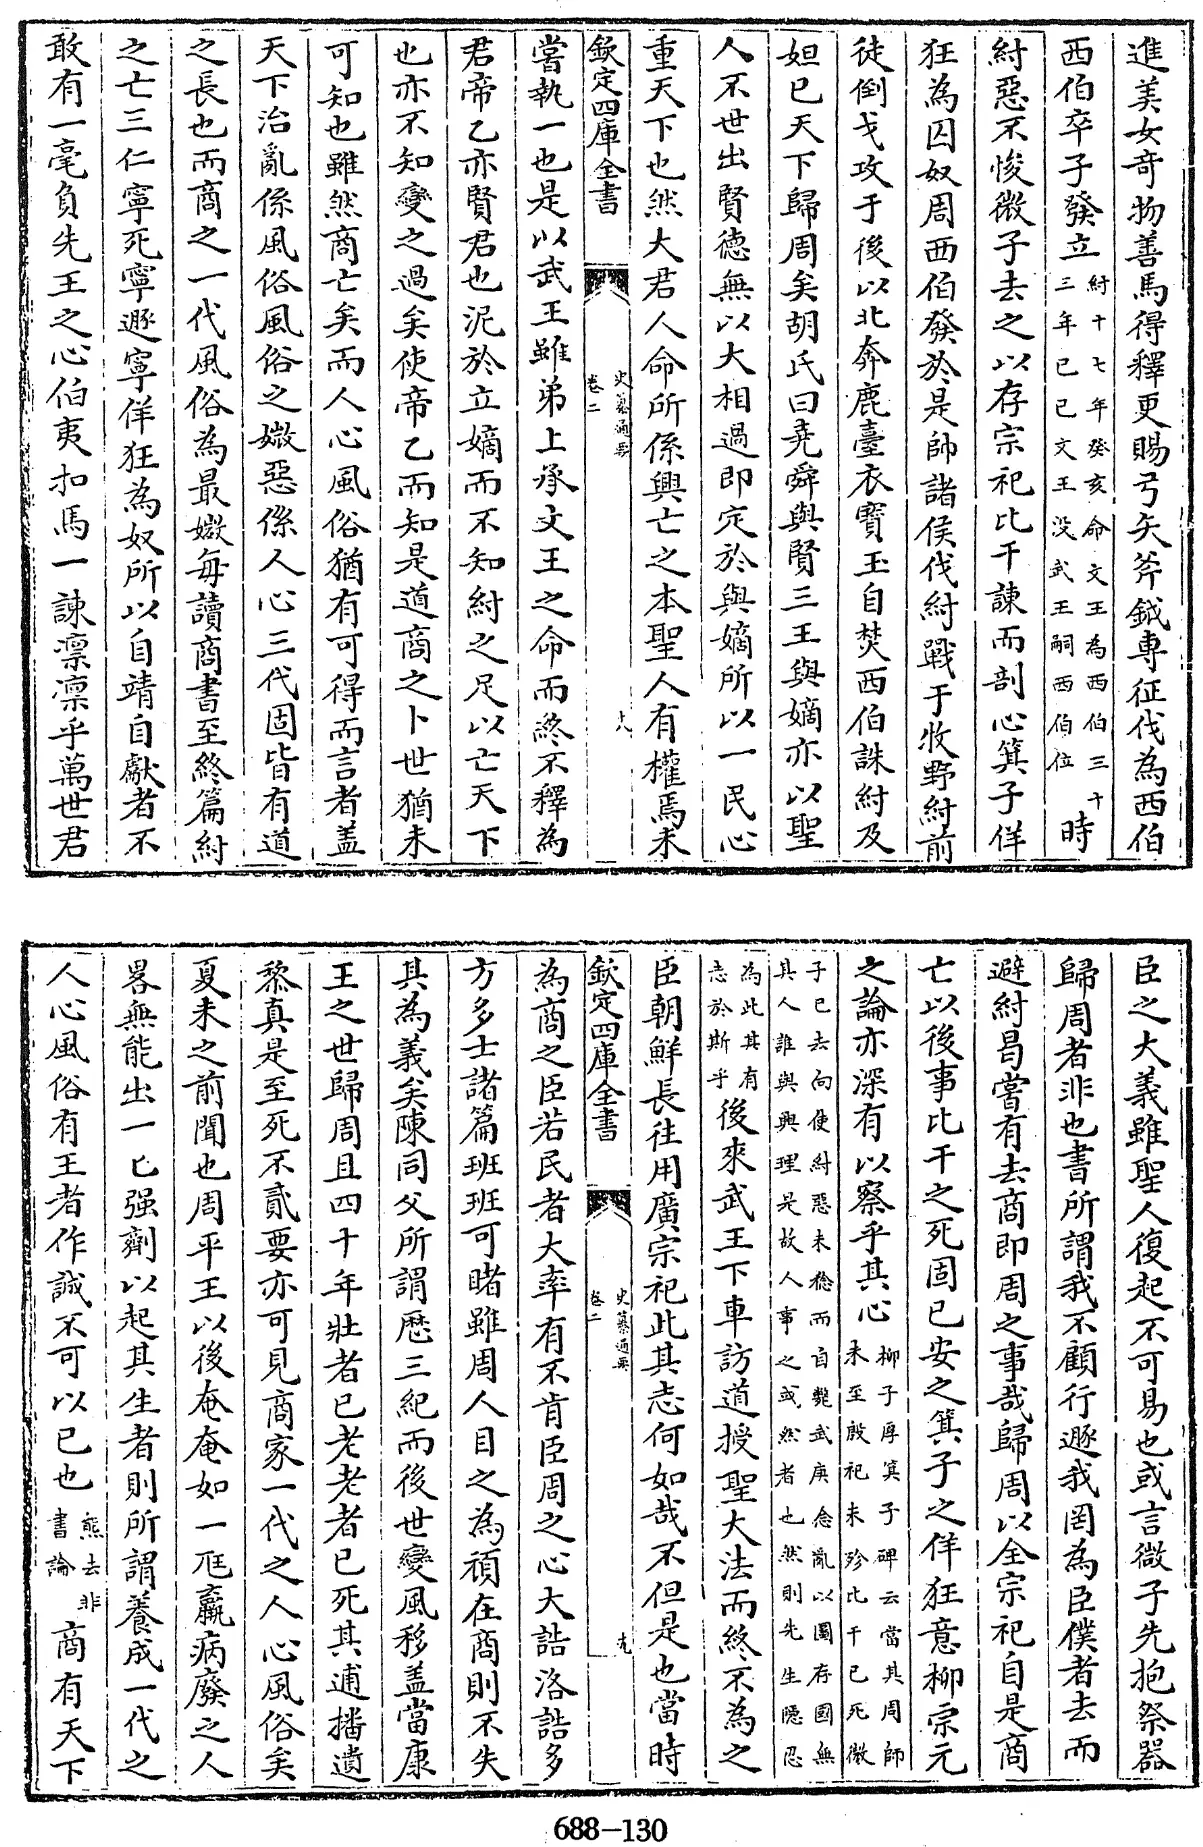 進美女奇物善馬得釋更賜弓矢斧鉞專征伐為西伯
西伯卒子發立紂十七年癸亥命文王為西伯三十三年已已文王沒武王嗣西伯位時
紂惡不悛微子去之以存宗祀比干諫而剖心箕子佯
狂為囚奴周西伯發於是帥諸侯伐紂戰于牧野紂前
徒倒戈攻于後以北奔鹿臺衣寳玉自焚西伯誅紂及
妲已天下歸周矣胡氏曰堯舜與賢三王與嫡亦以聖
人不世出賢德無以大相過即定於與嫡所以一民心
重天下也然大君人命所係興亡之本聖人有權焉未
欽定四庫全書
史纂通要
卷二
十八
嘗執一也是以武王雖弟上承文王之命而終不釋為
君帝乙亦賢君也泥於立嫡而不知紂之足以亡天下
也亦不知變之過矣使帝乙而知是道商之卜世猶未
可知也雖然商亡矣而人心風俗猶有可得而言者盖
天下治亂係風俗風俗之媺惡係人心三代固皆有道
之長也而商之一代風俗為最媺每讀商書至終篇紂
之亡三仁寧死寧遯寧佯狂為奴所以自靖自獻者不
敢有一毫負先王之心伯夷扣馬一諫凛凛乎萬世君
臣之大義雖聖人復起不可易也或言微子先抱祭器
歸周者非也書所謂我不顧行遯我罔為臣僕者去而
避紂曷嘗有去商即周之事哉歸周以全宗祀自是商
亡以後事比干之死固已安之箕子之佯狂意柳宗元
之論亦深有以察乎其心柳子厚箕子碑云當其周師未至殷祀未殄比干已死微
子已去向使紂惡未稔而自斃武庚念亂以圖存國無其人誰與興理是故人事之或然者也然則先生隱忍
為此其有志於斯乎後來武王下車訪道授聖大法而終不為之
臣朝鮮長往用廣宗祀此其志何如哉不但是也當時
欽定四庫全書
史纂通要
卷二
十九
為商之臣若民者大率有不肯臣周之心大誥洛誥多
方多士諸篇班班可睹雖周人目之為頑在商則不失
其為義矣陳同父所謂歷三紀而後世變風移盖當康
王之世歸周且四十年壯者已老老者已死其逋播遺
黎真是至死不貳要亦可見商家一代之人心風俗矣
夏未之前聞也周平王以後奄奄如一尫羸病廢之人
畧無能出一匕强劑以起其生者則所謂養成一代之
人心風俗有王者作誠不可以已也熊去非書論商有天下
688-130